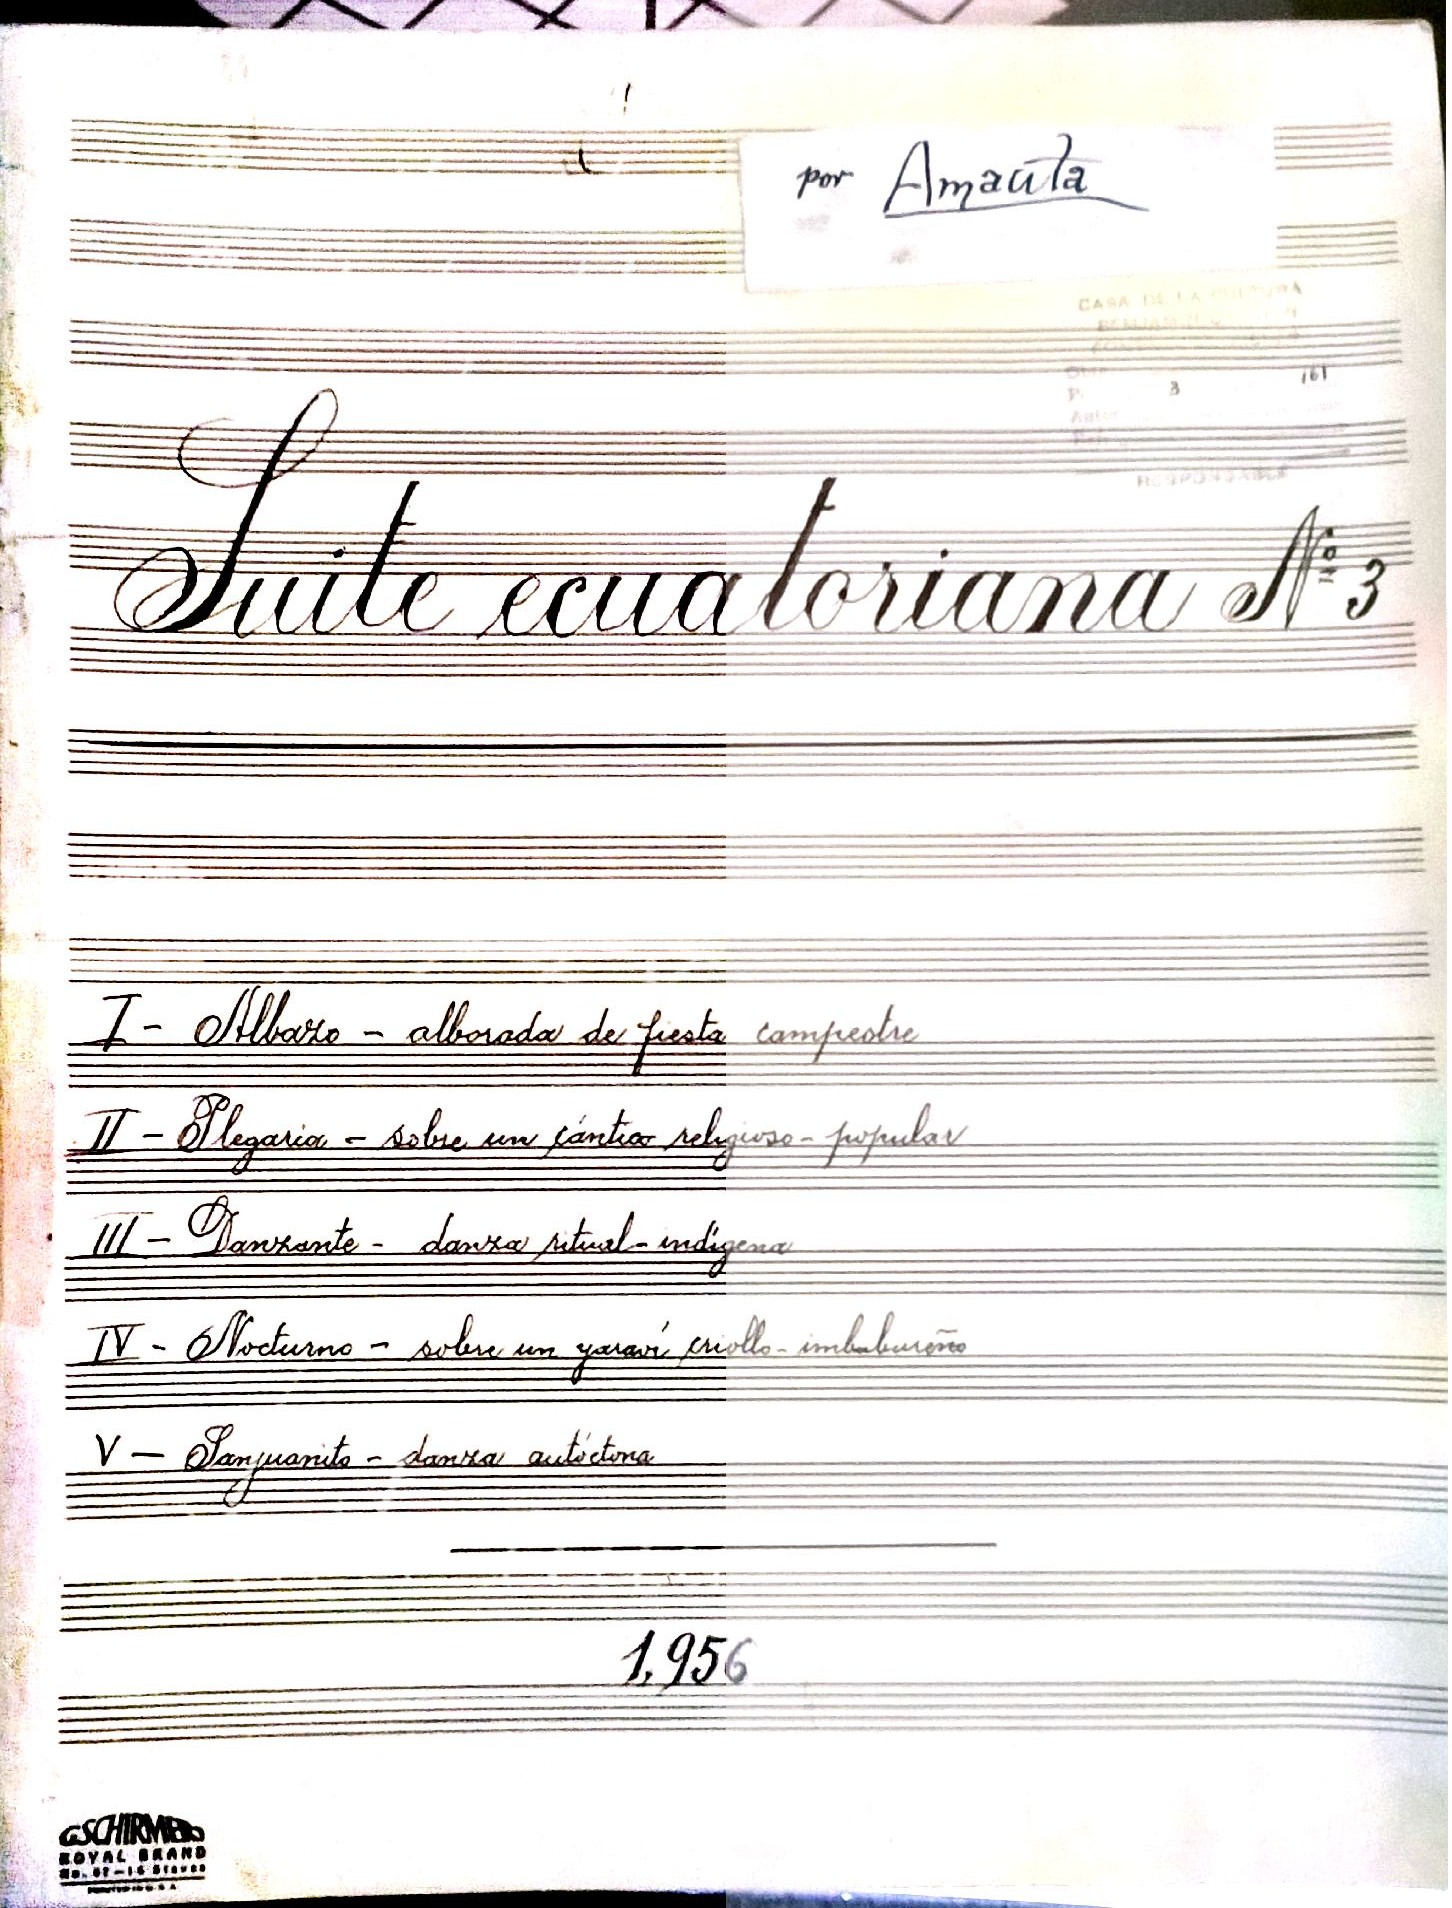 por Amauta
CASA DE LA CULTURA
3 161
RESPONSABLE
Suite ecuatoriana Nº 3
I - Albazo - alborada de fiesta campestre
II - Plegaria - sobre un cántico religioso - popular
III - Danzante - danza ritual - indígena
IV - Nocturno - sobre un yaraví criollo - imbabureño
V - Sanjuanito - danza autóctona
1,956
G SCHIRMER
ROYAL BRAND